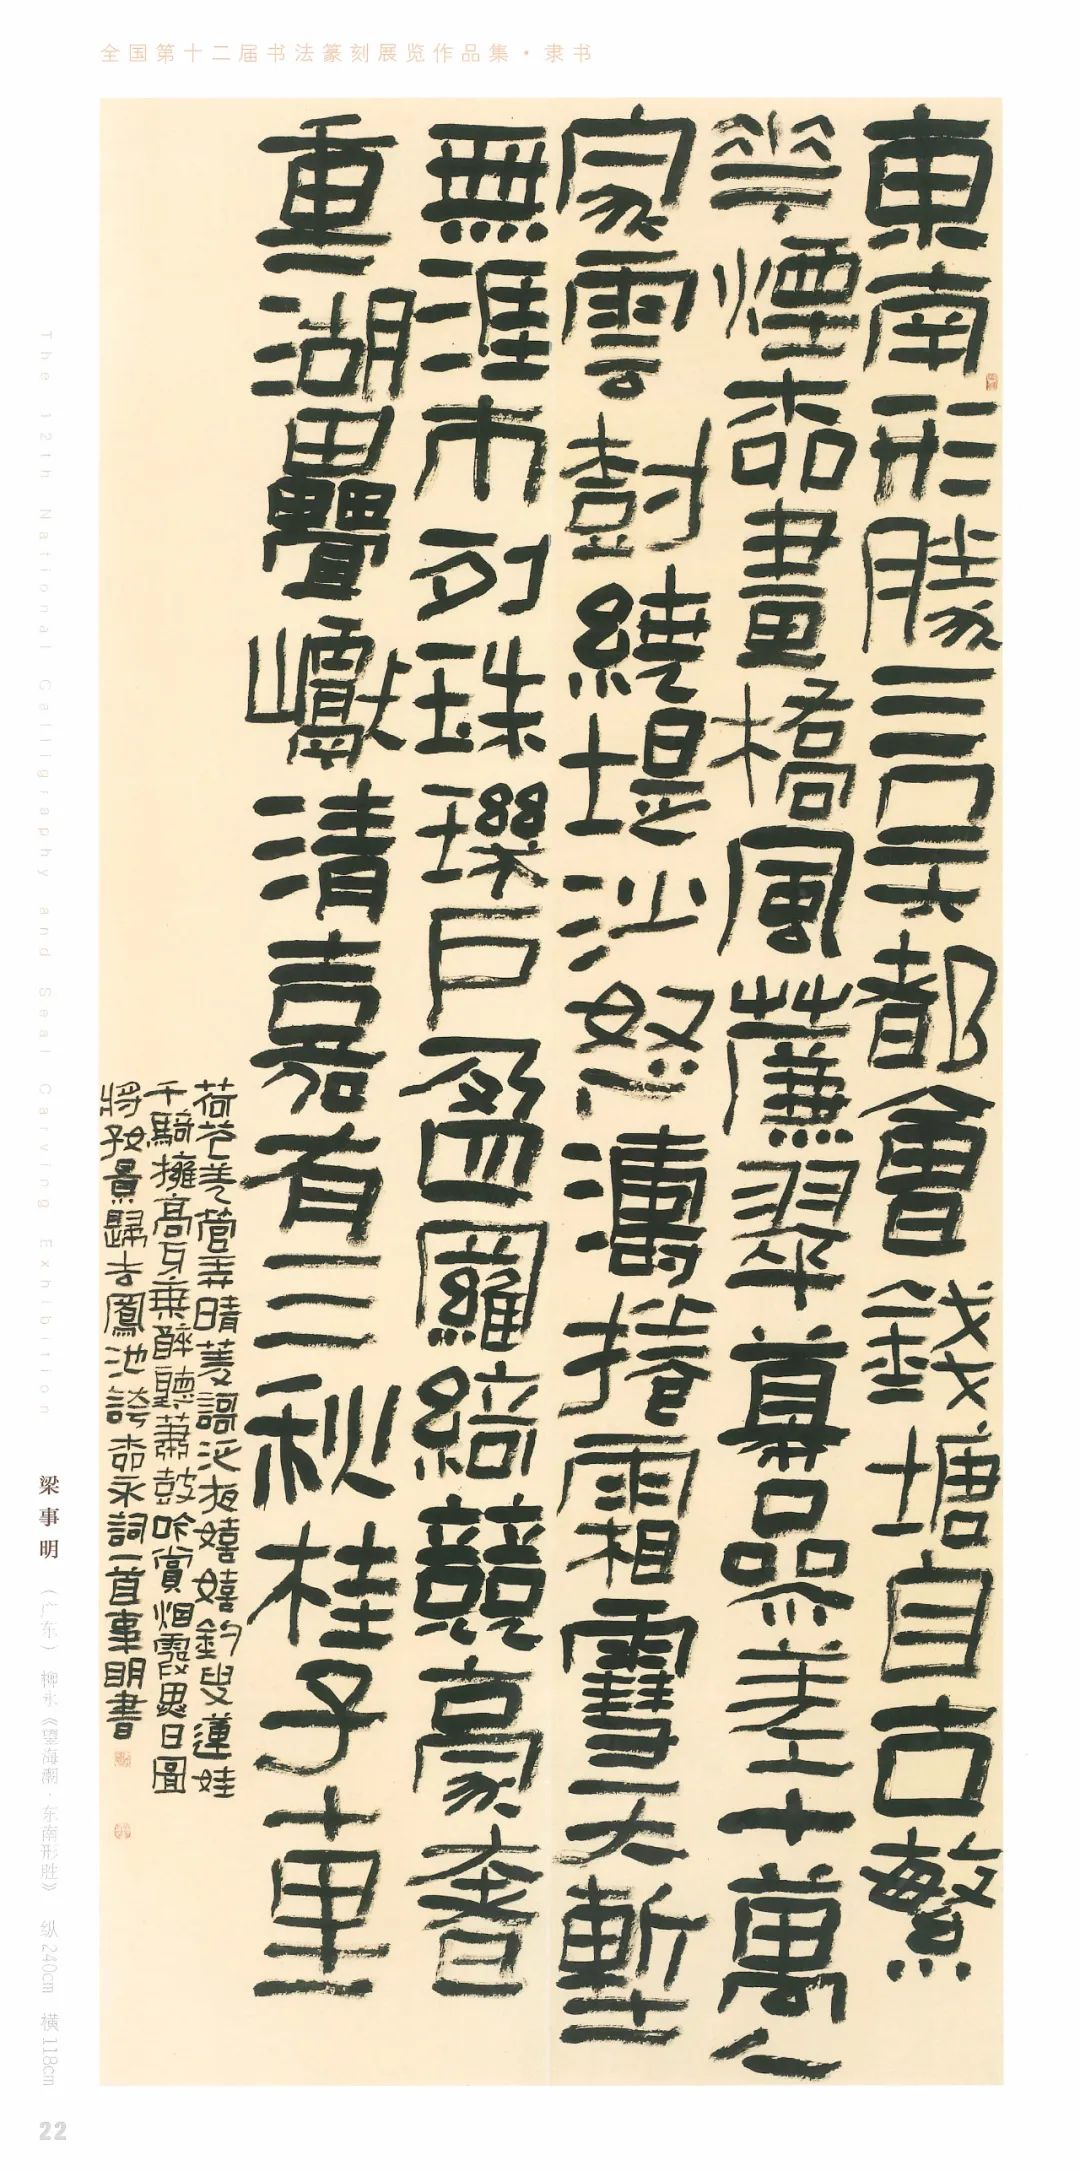 全国第十二届书法篆刻展览作品集・隶书
東南形勝三吳都會錢塘自古繁
華煙桺畫橋風薕翠幕參差十萬人
家雲樹繞堤沙怒濤捲霜雪天塹
無涯市列珠璣戶盈羅綺競豪奢
重湖疊巘清嘉有三秋桂子十里
荷花羌管弄晴菱謌泛夜嬉嬉釣叟蓮娃
千騎擁高牙乘醉聽蕭鼓吟賞烟霞異日圖
將好景歸去鳳池誇桺永詞一首事明書
The 12th National Calligraphy and Seal Carving Exhibition
梁事明（广东） 柳永《望海潮·东南形胜》 纵240cm 横118cm
22